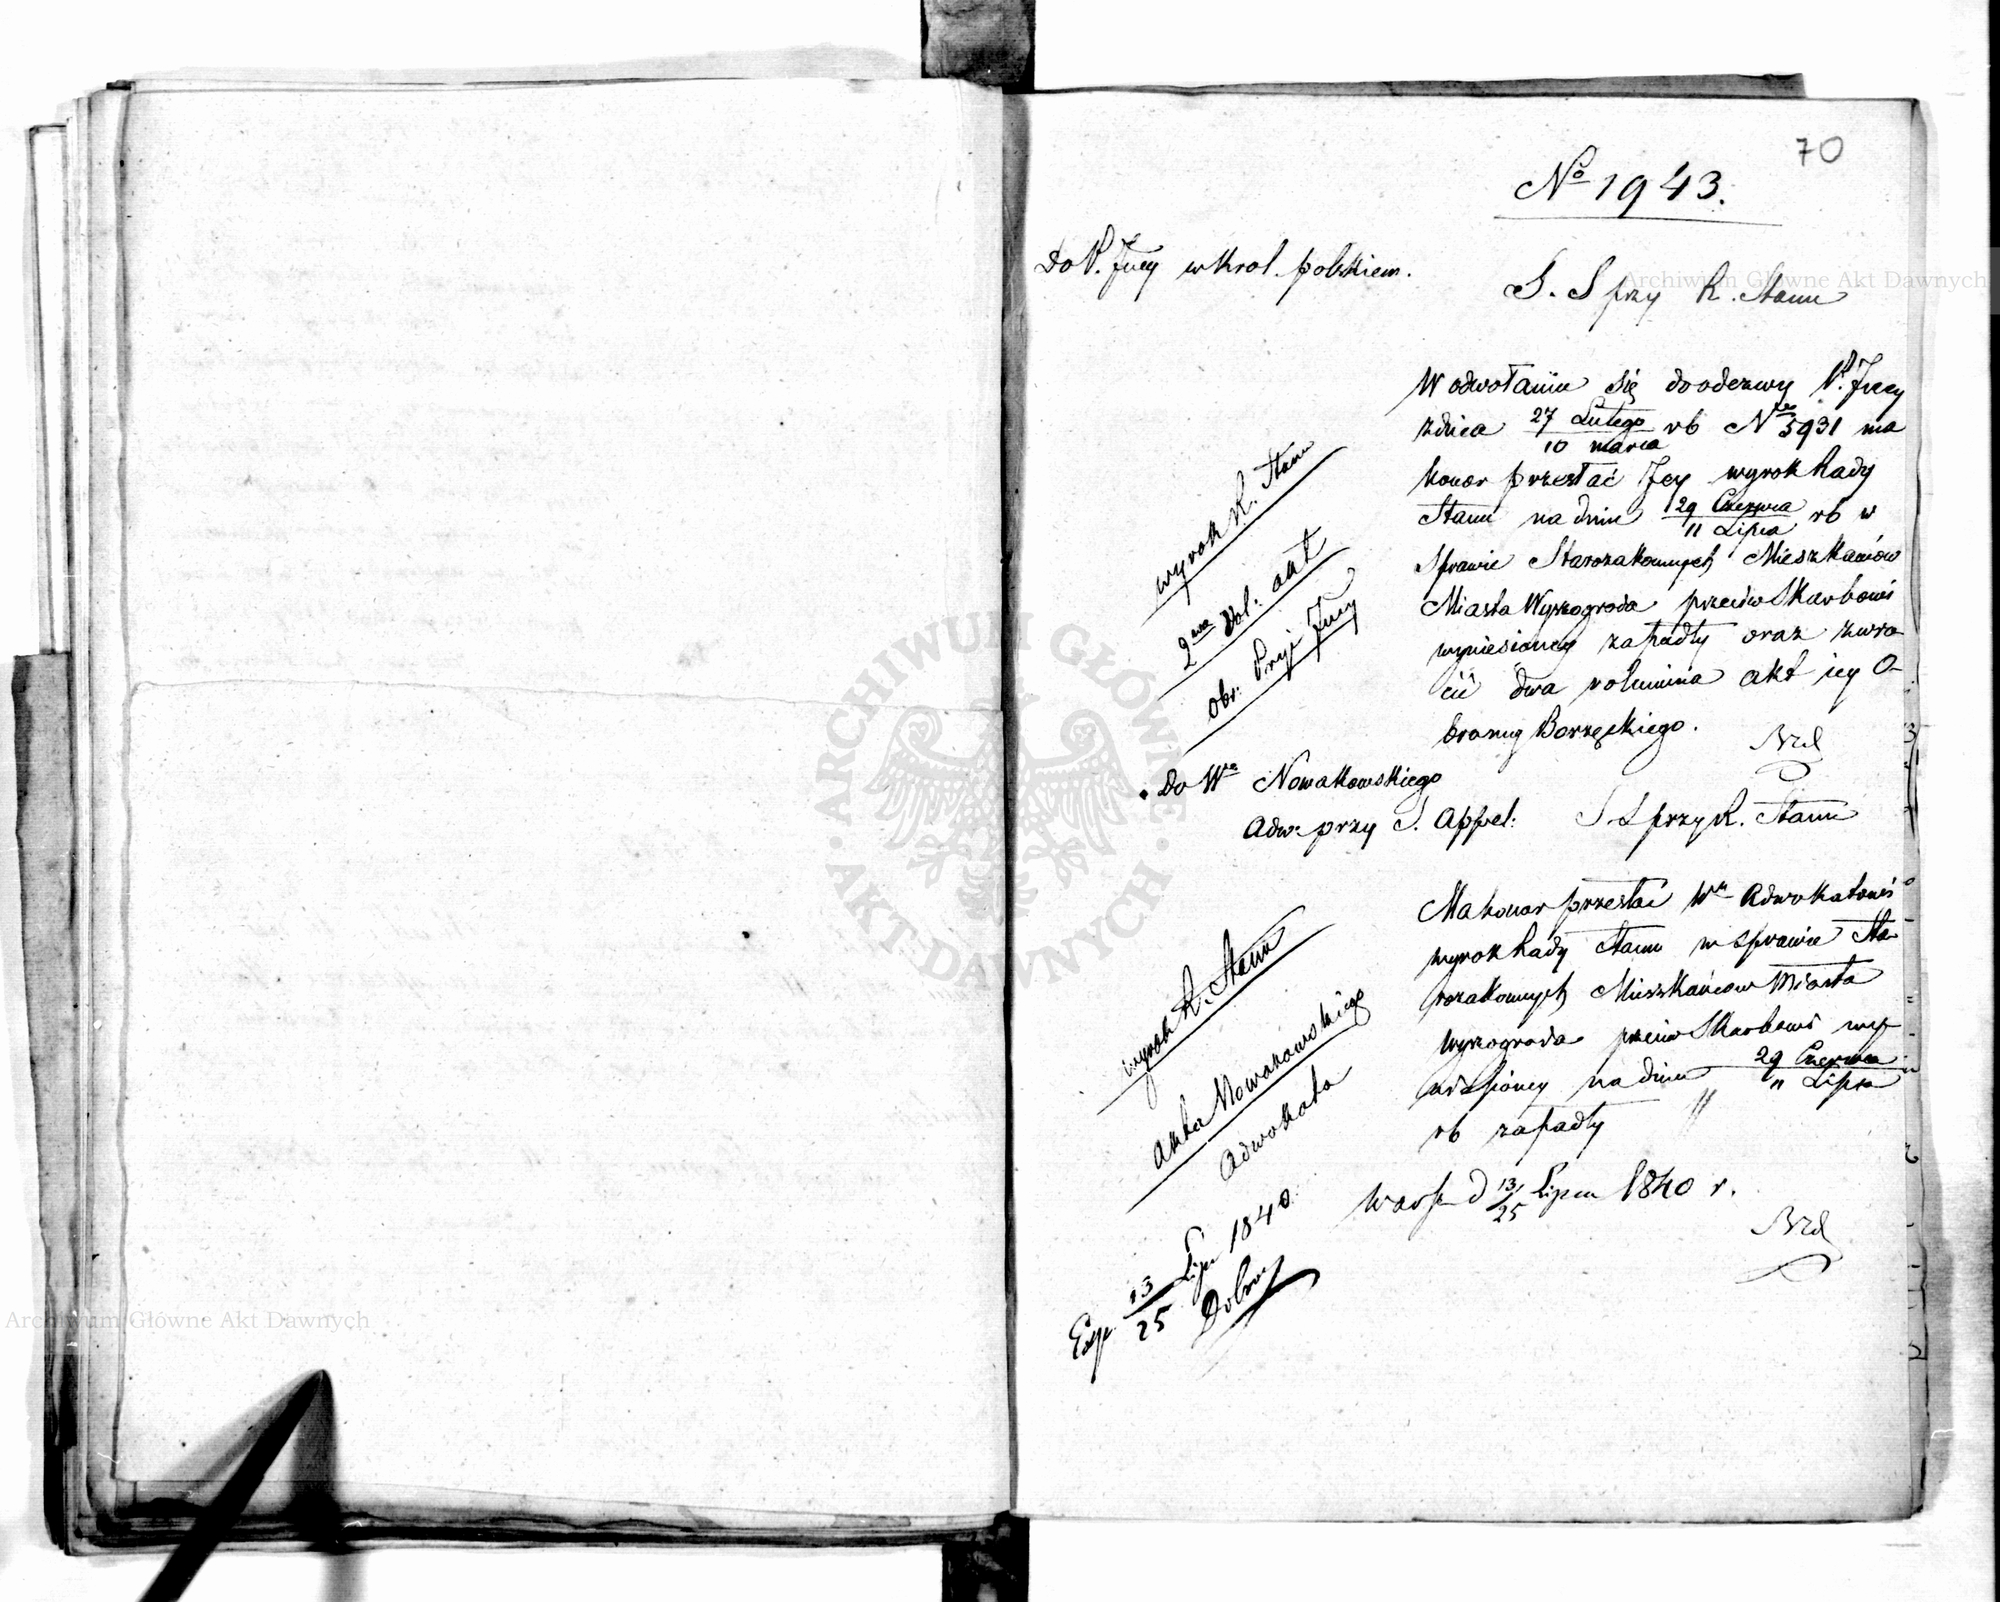 70
No 1943.
Do P. Jney w Krol. polskiem.
S. S przy R. Stanu
W odwołaniu się do odezwy P. Jney
z dnia 27 Lutego / 10 marca rb No 5931 ma
honor przesłać Jey wyrok Rady
Stanu na dniu 29 Czerwca / 11 Lipca rb w
Sprawie Starozakonnych Mieszkańców
Miasta Wyszogroda przeciw Skarbowi
wyniesioney zapadły oraz zwró-
cić dwa volumina akt iey O-
brońcy Borzęckiego.
wyrok R. Stanu
2wa Vol: akt
Obr: Prji Jney
Do We Nowakowskiego
Adw: przy S. Appel:
S. S przy R. Stanu
Ma honor przesłać Wu Adwokatowi
wyrok Rady Stanu w sprawie Sta-
rozakonnych Mieszkańców Miasta
Wyszogroda przeciw Skarbowi wy-
niesioney na dniu 29 Czerwca / 11 Lipca
rb zapadły
wyrok R. Stanu
akta Nowakowskiego
Adwokata
Warsz d 13/25 Lipca 1840 r.
Exp. 13/25 Lipca 1840.
Archiwum Główne Akt Dawnych
Archiwum Główne Akt Dawnych
ARCHIWUM GŁÓWNE · AKT DAWNYCH ·